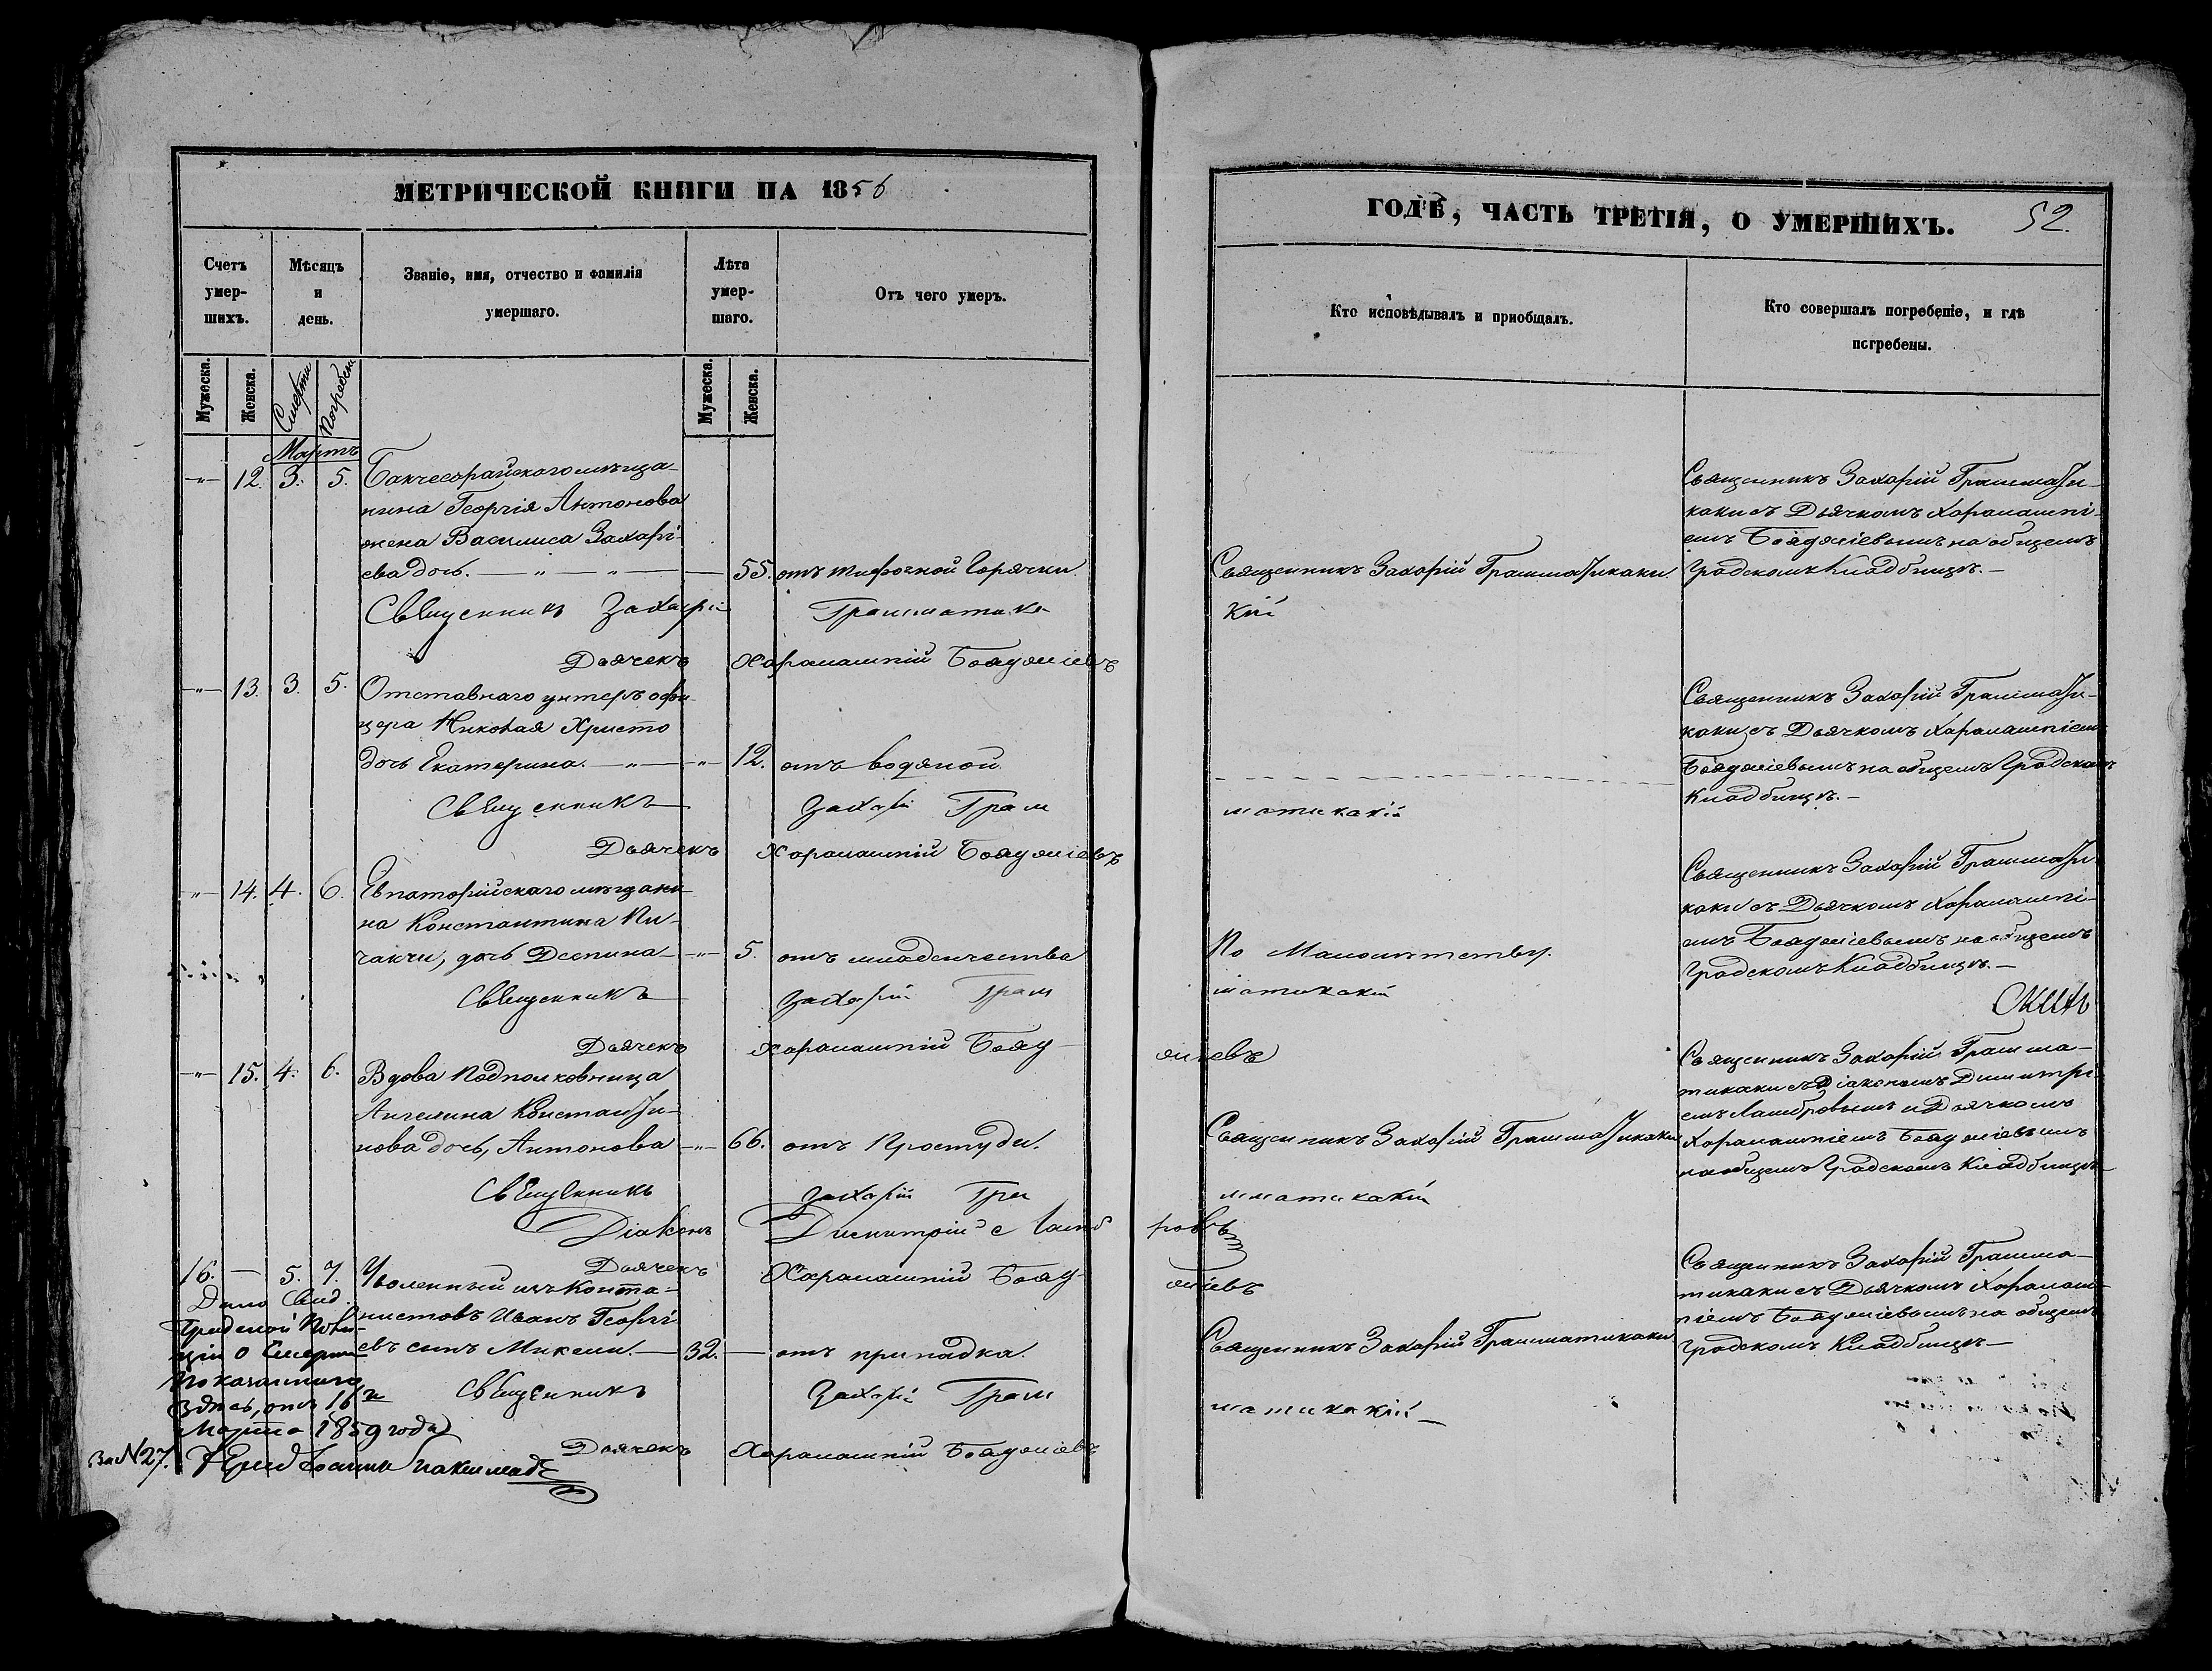 МЕТРИЧЕСКОЙ КНИГИ НА 1856
ГОДЪ, ЧАСТЬ ТРЕТІЯ, О УМЕРШИХЪ. 52.
Счетъ умер-шихъ.
Мѣсяцъ и день.
Званіе, имя, отчество и фамилія умершаго.
Лѣта умер-шаго.
Отъ чего умеръ.
Кто исповѣдывалъ и пріобщалъ.
Кто совершалъ погребеніе, и гдѣ погребены.
Мужеска. Женска. Смерти Погребен. Мужеска. Женска.
Мартъ
12. 3. 5. Бакчесарайскаго мѣща-
нина Георгія Антонова
жена Василиса Захарі-
ева дочь. 55. отъ тифозной горячки.
Священникъ Захарій Грамматикаки.
Священникъ Захарій Граммати-
каки съ Дьячкомъ Харалампі-
емъ Бояджіевымъ на общемъ
Градскомъ Кладбищѣ.
Священникъ Захарі Грамматика
кій
Дьячекъ Харалампій Бояджіевъ
13. 3. 5. Отставнаго унтеръ офи-
цера Николая Христо
дочь Екатерина. 12. отъ водяной.
Священникъ Захарій Граммати-
каки съ Дьячкомъ Харалампіемъ
Бояджіевымъ на общемъ Градскомъ
Кладбищѣ.
Священникъ Захарі Грам
матикакій
Дьячекъ Харалампій Бояджіевъ
14. 4. 6. Евпаторійскаго мѣщани
на Константина Пи-
чакчи, дочь Деспина 5. отъ младенчества
По Малолѣтству.
Священникъ Захарій Граммати
каки съ Дьячкомъ Харалампі-
емъ Бояджіевымъ на общемъ
Градскомъ Кладбищѣ.
Священникъ Захарій Грам
матикакій
Дьячекъ Харалампій Бояд
жіевъ
15. 4. 6. Вдова Подполковница
Ангелина Константи-
нова дочь, Антонова 66. отъ Простуды.
Священникъ Захарій Грамматикаки
Священникъ Захарій Грамма-
тикаки съ Діакономъ Димитрі-
емъ Ламбровымъ и Дьячкомъ
Харалампіемъ Бояджіевымъ
на общемъ Градскомъ Кладбищѣ
Священникъ Захарій Гра
мматикакій
Діаконъ Димитрій Ламб
ровъ
Дьячекъ Харалампій Бояд
жіевъ
16. 5. 7. Уволенный изъ
нистовъ Иванъ Георгі
евъ сынъ Микели. 32. отъ припадка.
Священникъ Захарій Грамматикаки
Священникъ Захарій Грамма-
тикаки съ Дьячкомъ Харалам-
піемъ Бояджіевымъ на общемъ
Градскомъ Кладбищѣ
Священникъ Захарі Грам
матикакій
Дьячекъ Харалампій Бояджіевъ
Дано Свид.
Градской Поли-
ціи о Смерти
показаннаго
здѣсь, отъ 16 го
Марта 1859 года
За №27.